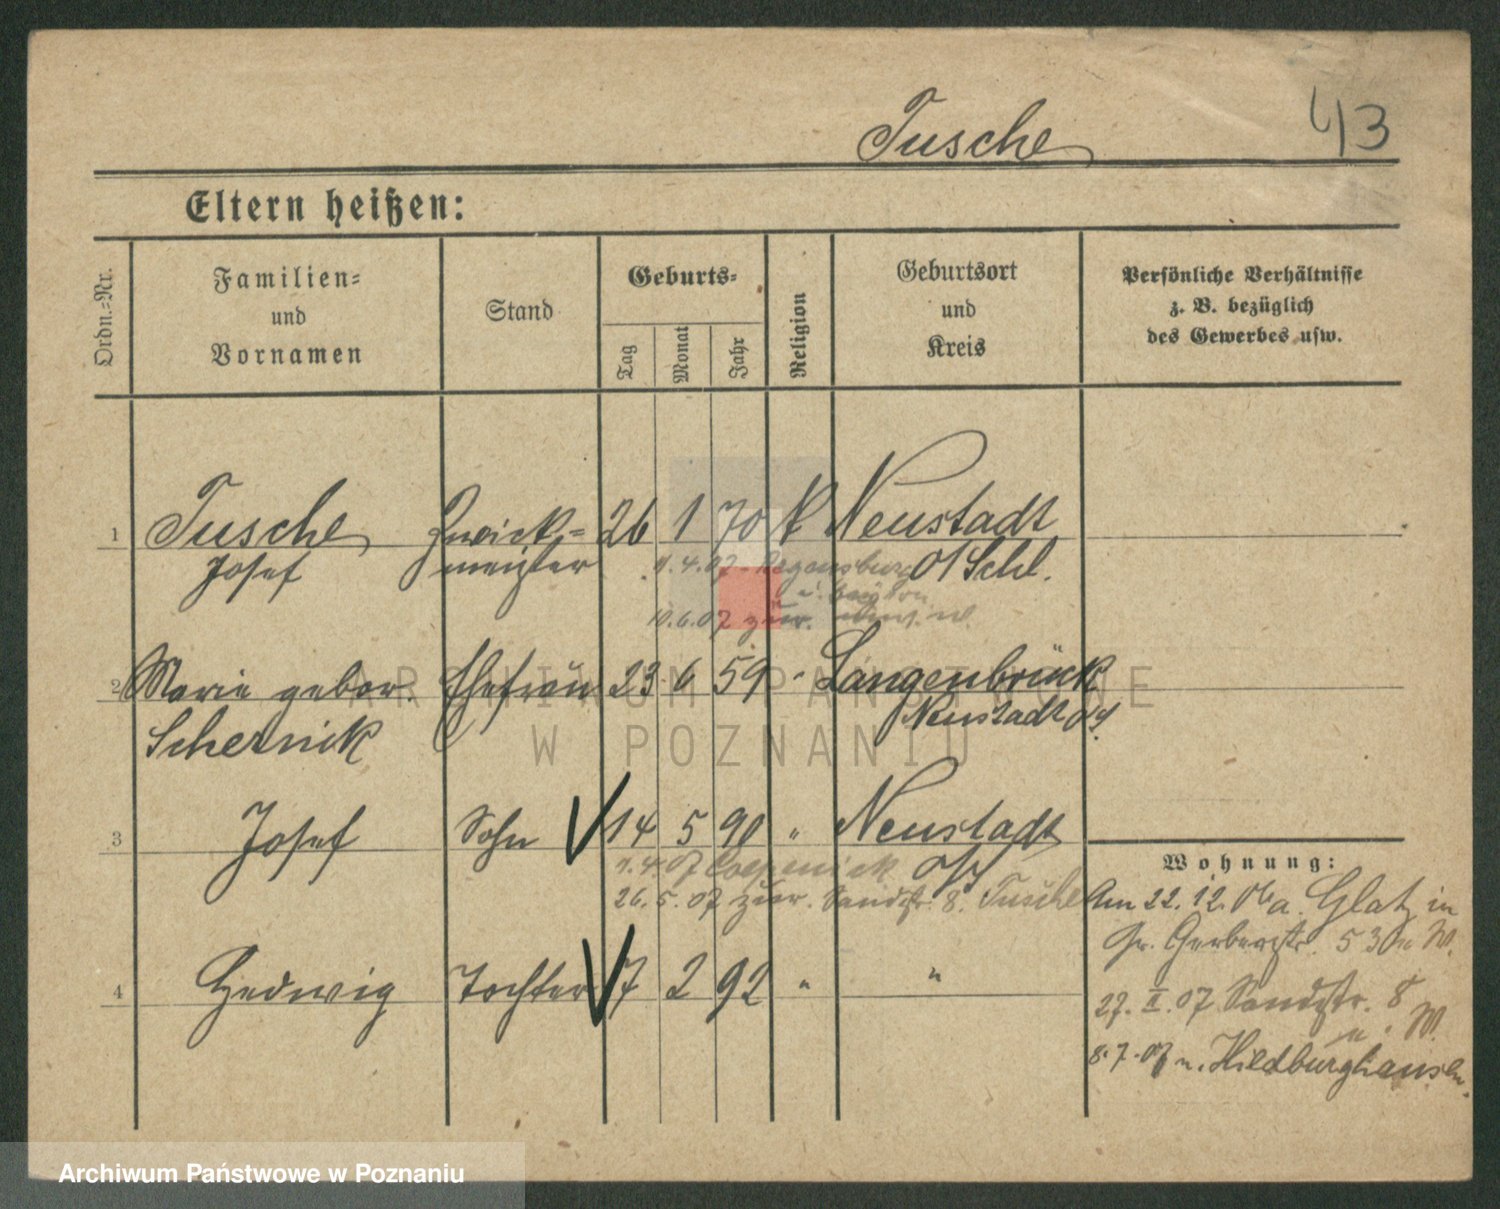 Tusche
43
Eltern heißen:
Ordn.-Nr.
Familien-
und
Vornamen
Stand
Geburts-
Tag
Monat
Jahr
Religion
Geburtsort
und
Kreis
Persönliche Verhältnisse
z. B. bezüglich
des Gewerbes usw.
1 Tusche Zwick- 26 1 70 k Neustadt
Josef meister O/Schl.
1.4.07 Regensburg
10.6.07 zur.
2 Marie gebor. Ehefrau 23 6 59 " Langenbrück
Schernik Neustadt O/S.
3 Josef Sohn 14 5 90 " Neustadt
1.4.07 Coepenick O/S
26.5.07 zur. Sandstr. 8. Tusche
4 Hedwig Tochter 7 2 92 " "
Wohnung:
Am 22.12.06 a. Glatz in
Gr. Gerberstr. 53 n. W.
27.II.07 Sandstr. 8
n. W.
8.7.07 n. Hildburghausen.
ARCHIWUM PAŃSTWOWE
W POZNANIU
Archiwum Państwowe w Poznaniu